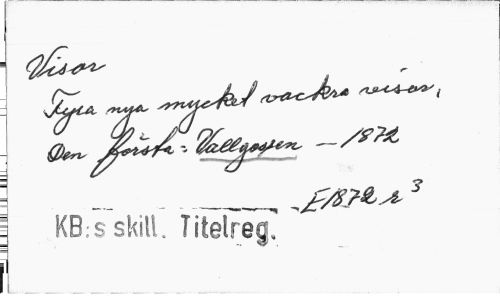 Visor
Fyra nya mycket vackra visor,
Den första = Vallgossen — 1872
E1872 r³
KB:s skill. Titelreg.